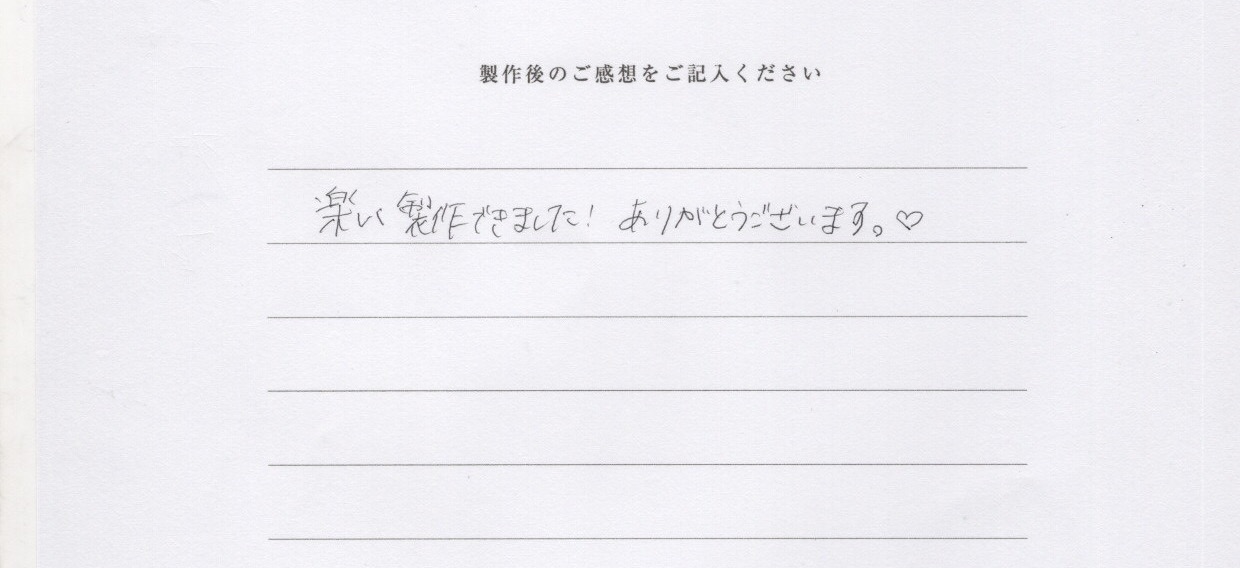 製作後のご感想をご記入ください
楽い 製作できました! ありがとうございます。♡